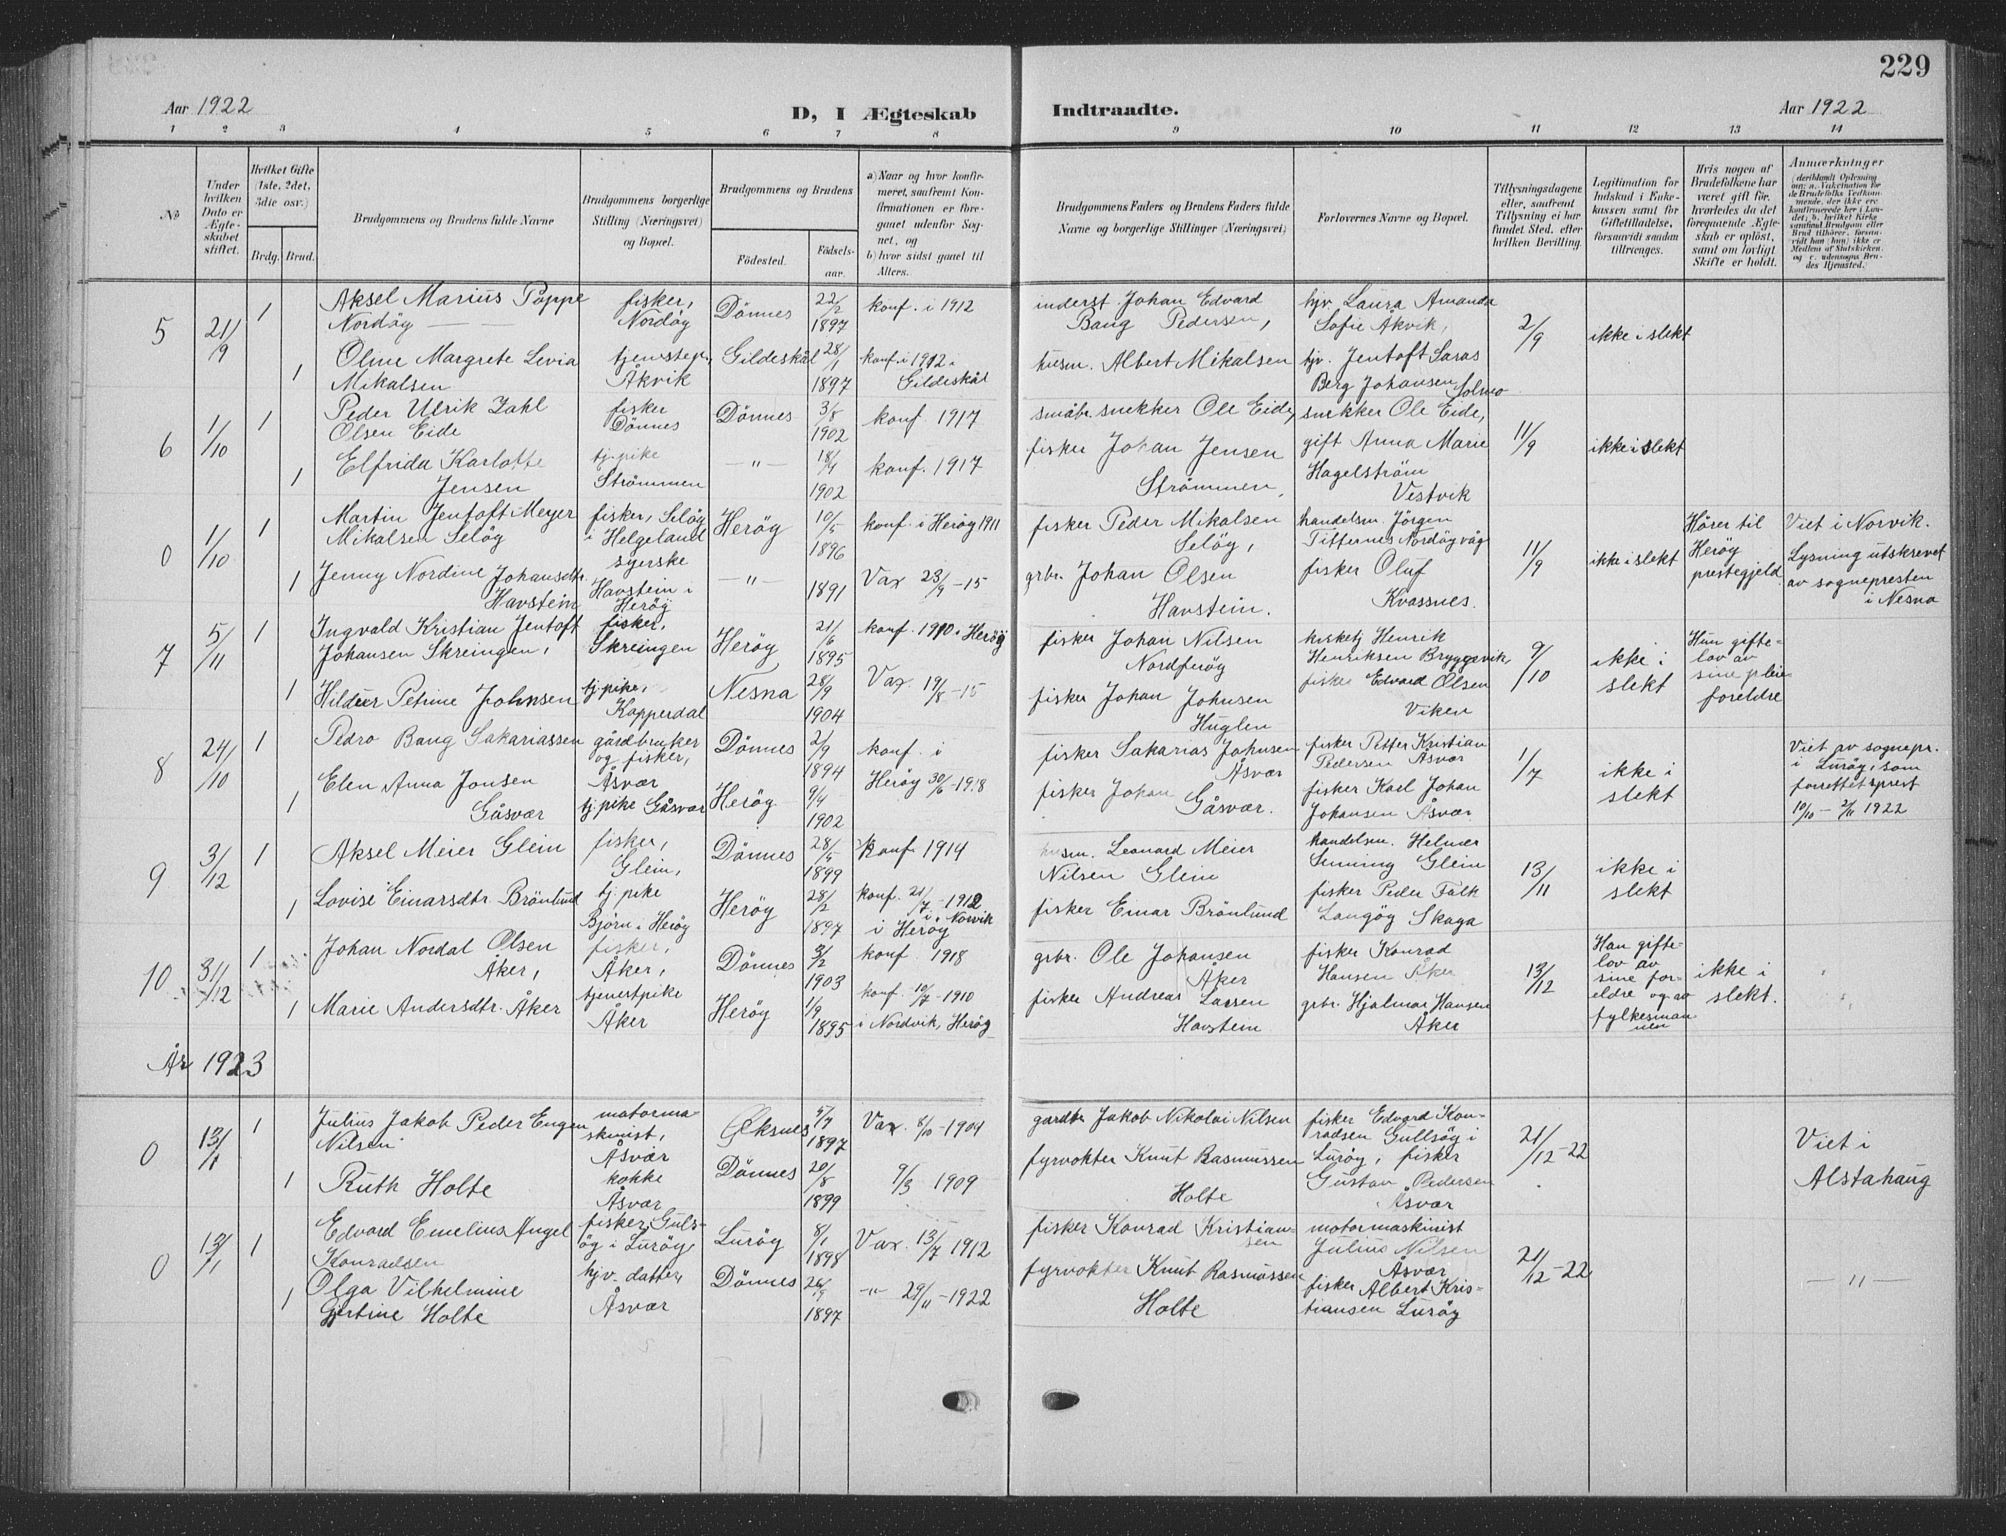 229
Aar 1922
D, I Ægteskab Indtraadte.
Aar 1922
1 2 3 4 5 6 7 8 9 10 11 12 13 14
No
Under hvilken Dato er Ægteskabet stiftet.
Hvilket Gifte (1ste, 2det, 3die osv.)
Brdg. Brud.
Brudgommens og Brudens fulde Navne
Brudgommens borgerlige Stilling (Næringsvei) og Bopæl.
Brudgommens og Brudens
Fødested.
Fødselsaar.
a) Naar og hvor konfirmeret, saafremt Konfirmationen er foregaaet udenfor Sognet, og
b) hvor sidst gaaet til Alters.
Brudgommens Faders og Brudens Faders fulde Navne og borgerlige Stillinger (Næringsvei)
Forlovernes Navne og Bopæl.
Tillysningsdagene eller, saafremt Tillysning ei har fundet Sted, efter hvilken Bevilling.
Legitimation for Indskud i Enkekassen samt for Giftetilladelse, forsaavidt saadan tiltrænges.
Hvis nogen af Brudefolkene har været gift før, hvorledes da det foregaaende Ægteskab er opløst, samt om lovligt Skifte er holdt.
Anmærkninger
5 21/9 1 Aksel Marius Poppe Nordøy fisker, Nordøy Dönnes 22/2 1897 konf. i 1912 inderst Johan Edvard Bang Pedersen, hjv Laura Amanda Sofie Åkvik, 2/9 ikke i slekt
1 Oline Margrete Levia Mikalsen tjenestepi, Åkvik Gildeskål 28/1 1897 konf. i 1912 i Gildeskål husm. Albert Mikalsen hjv. Jentoft Saras Berg Johansen Solmo
6 1/10 1 Peder Ulrik Zahl Olsen Eide fisker Dönnes Dönnes 3/8 1902 konf. 1917 småbr. snekker Ole Eide, snekker Ole Eide, 11/9 ikke i slekt
1 Elfrida Karlotte Jensen tj.pike Strömmen — " — 18/4 1902 konf. 1917 fisker Johan Jensen Strömmen, gift Anna Marie Hagelström Vestvik
0 1/10 1 Martin Jentoft Meyer Mikalsen Seløy fisker, Seløy i Helgeland Herøy 10/5 1896 konf. i Herøy 1911 fisker Peder Mikalsen Seløy, handelsm. Jörgen Tiffernes Nordøyvåg 11/9 ikke i slekt Hører til Herøy prestegjeld. Viet i Norvik. Lysning utskrevet av sognepresten i Nesna
1 Jenny Nordine Johansdtr. Havstein syerske Havstein i Herøy — " — 1891 Vax 23/9 - 15 grbr. Johan Olsen Havstein. fisker Oluf Kvassnes.
7 5/11 1 Ingvald Kristian Jentoft Johansen Skreingen, fisker, Skreingen Herøy 21/6 1895 konf. 1910 i Herøy fisker Johan Nilsen Nordfuröy Henrik Henriksen Bryggevik, 9/10 ikke i slekt Hun giftelov av sine pleieforeldre
1 Hildur Petrine Johnsen tj.pike, Kopperdal Nesna 28/9 1904 Vax. 19/8 - 15 fisker Johan Johnsen Huglen fisker Edvard Olsen Viken
8 24/10 1 Pedro Bang Sakariassen gårdbruker og fisker, Åsvær Dönnes 2/9 1894 konf. i Herøy fisker Sakarias Johnsen Åsvær fisker Petter Kristian Pedersen Åsvær 1/7 ikke i slekt Viet av sognepr. i Lurøy, som forrettet sprest 10/10 - 2/11 1922
1 Elen Anna Jonsen Gåsvær tj.pike Gåsvær Herøy 9/4 1902 30/6 - 1918 fisker Johan Gåsvær. fisker Karl Johan Johansen Åsvær
9 3/12 1 Aksel Meier Glein fisker, Glein, Dönnes 28/5 1899 konf 1914 husm. Leonard Meier Nilsen Glein handelsm. Helmer Senning Glein 13/11 ikke i slekt
1 Lovise Einarsdtr. Brönlund tj.pike Björn i Herøy Herøy 28/2 1897 konf. 21/7 - 1912 i Norvik i Herøy fisker Einar Brönlund fisker Peder Falk Langöy Skaga
10 31/12 1 Johan Nordal Olsen Åker, fisker, Åker, Dönnes 3/2 1903 konf 1918 grbr. Ole Johansen Åker fisker Konrad Hansen Åker 13/12 Han giftelov av sine foreldre og av fylkesmannen ikke i slekt.
1 Marie Andersdtr. Åker tjenestpike Åker Herøy 1/9 1895 konf. 10/7 - 1910 i Nordvik, Herøy fisker Andreas Larsen Havstein grbr. Hjalmar Hansen Åker
År 1923
0 13/1 1 Julius Jakob Peder Eugen Nilsen motormaskinist, Åsvær Øksnes 4/4 1897 Vax. 8/10 - 1904 gardbr Jakob Nikolai Nilsen fisker Edvard Konradsen Gullsøy i Lurøy, 21/12 - 22 Viet i Alstahaug
1 Ruth Holte kokke Åsvær Dönnes 20/8 1899 9/3 1909 fyrvokter Knut Rasmussen Holte fisker Gustav Pedersen Åsvær
0 13/1 1 Edvard Emelius Angel Konradsen fisker, Gulsöy i Lurøy Lurøy 8/1 1898 Vax. 13/7 1912 fisker Konrad Kristiansen motormaskinist Julius Nilsen Åsvær 21/12 - 22 — " —
1 Olga Vilhelmine Gjertine Holte hjv. datter, Åsvær Dönnes 26/9 1897 " 29/11 - 1922 fyrvokter Knut Rasmussen Holte fisker Albert Kristiansen Lurøy